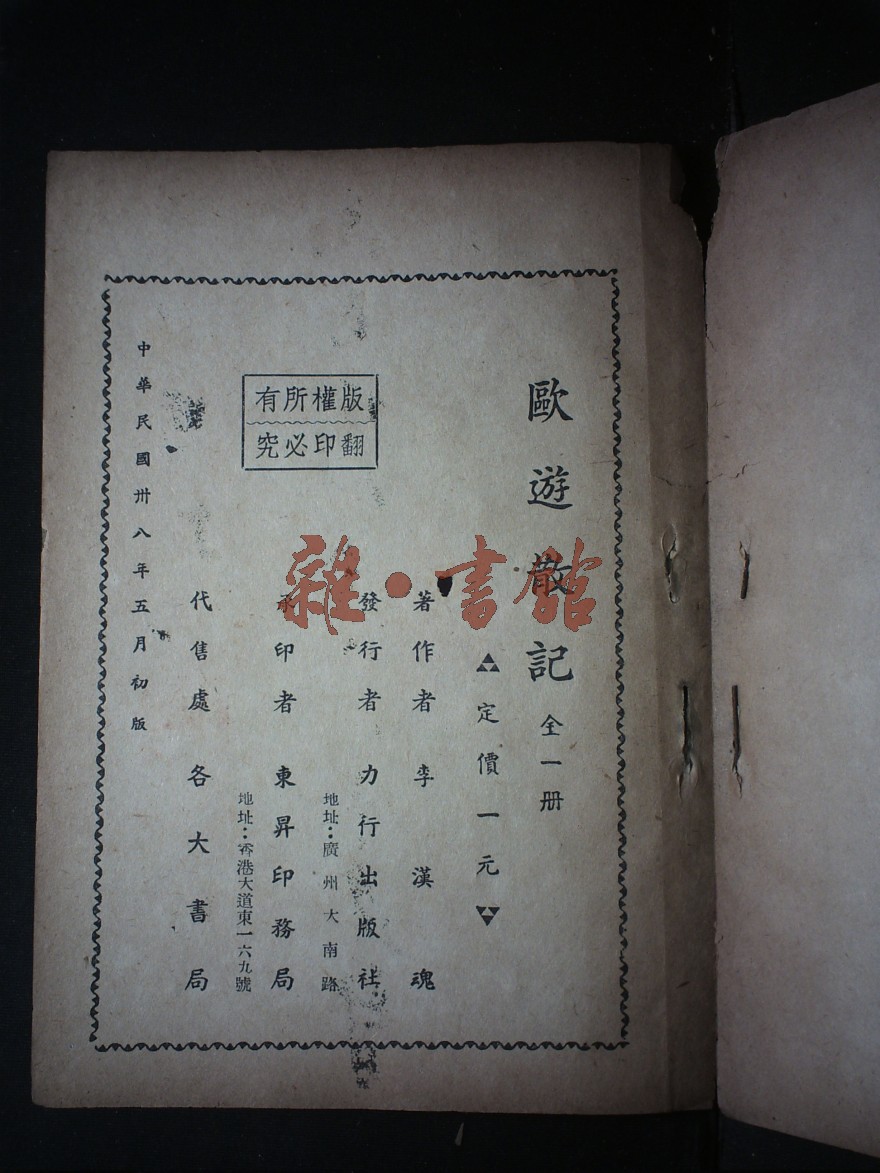 歐遊散記 全一册
定價一元
著作者 李漢魂
發行者 力行出版社
地址：廣州大南路
承印者 東昇印務局
地址：香港大道東一六九號
版權所有
翻印必究
代售處 各大書局
中華民國卅八年五月初版
雜·書館